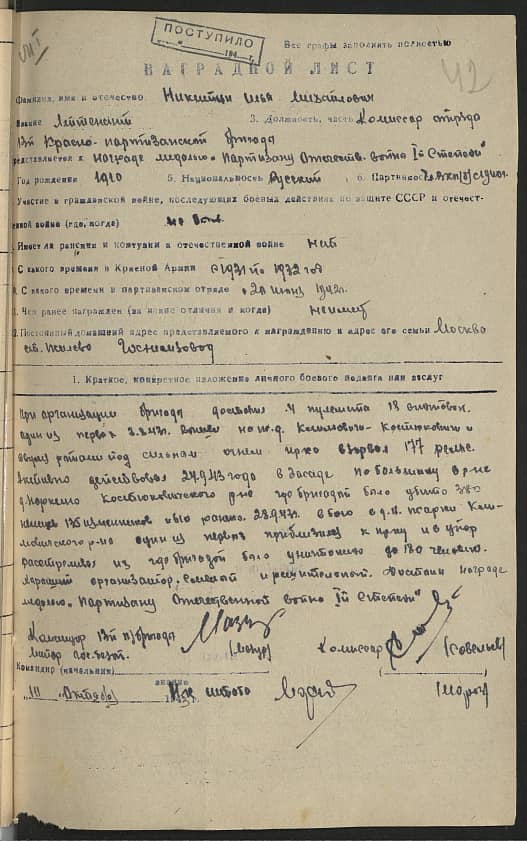 ПОСТУПИЛО
42
Все графы заполнять полностью
НАГРАДНОЙ ЛИСТ
Фамилия, имя и отчество Никитин Илья Михайлович
Звание Лейтенант 3. Должность, часть Комиссар отряда
13й Красно-партизанской бригады
представляется к награде медалью "Партизану Отечеств. войны Iй степени"
Год рождения 1910 5. Национальность Русский 6. Партийность
Участие в гражданской войне, последующих боевых действиях по защите СССР и отечест-
венной войне (где, когда)
Имеет ли ранения и контузии в отечественной войне нет
С какого времени в Красной Армии с 1931 по 1932 год
С какого времени в партизанском отряде с 20 июня 1942г.
Чем ранее награжден (за какие отличия и когда) не имеет
Постоянный домашний адрес представляемого к награждению и адрес его семьи Москва
ст.
1. Краткое, конкретное изложение личного боевого подвига или заслуг
При организации бригады доставил 4 пулемета 18 винтовок.
Один из первых вышел на ж.д. и
двумя ротами под сильным огнем ярко взорвал 177 рельс.
Активно действовал 27.9.43 года в засаде по большаку в р-не
д. Костюковичского р-на где бригадой было убито 380
немцев изменников и было ранено. 28.9.43г. в бою в д.
р-на один из первых приблизился к врагу и в упор
расстреливал из где бригадой было уничтожено до 180 человек.
Хороший организатор, смелый и решительный. Достоин награды
медалью "Партизану Отечественной войны Iй степени"
Командир 13й п/бригады
майор гос. безоп. (Мазур) Комиссар (Савельев)
Командир (начальник)
звание
"III" Октября Нач. штаба (Мороз)